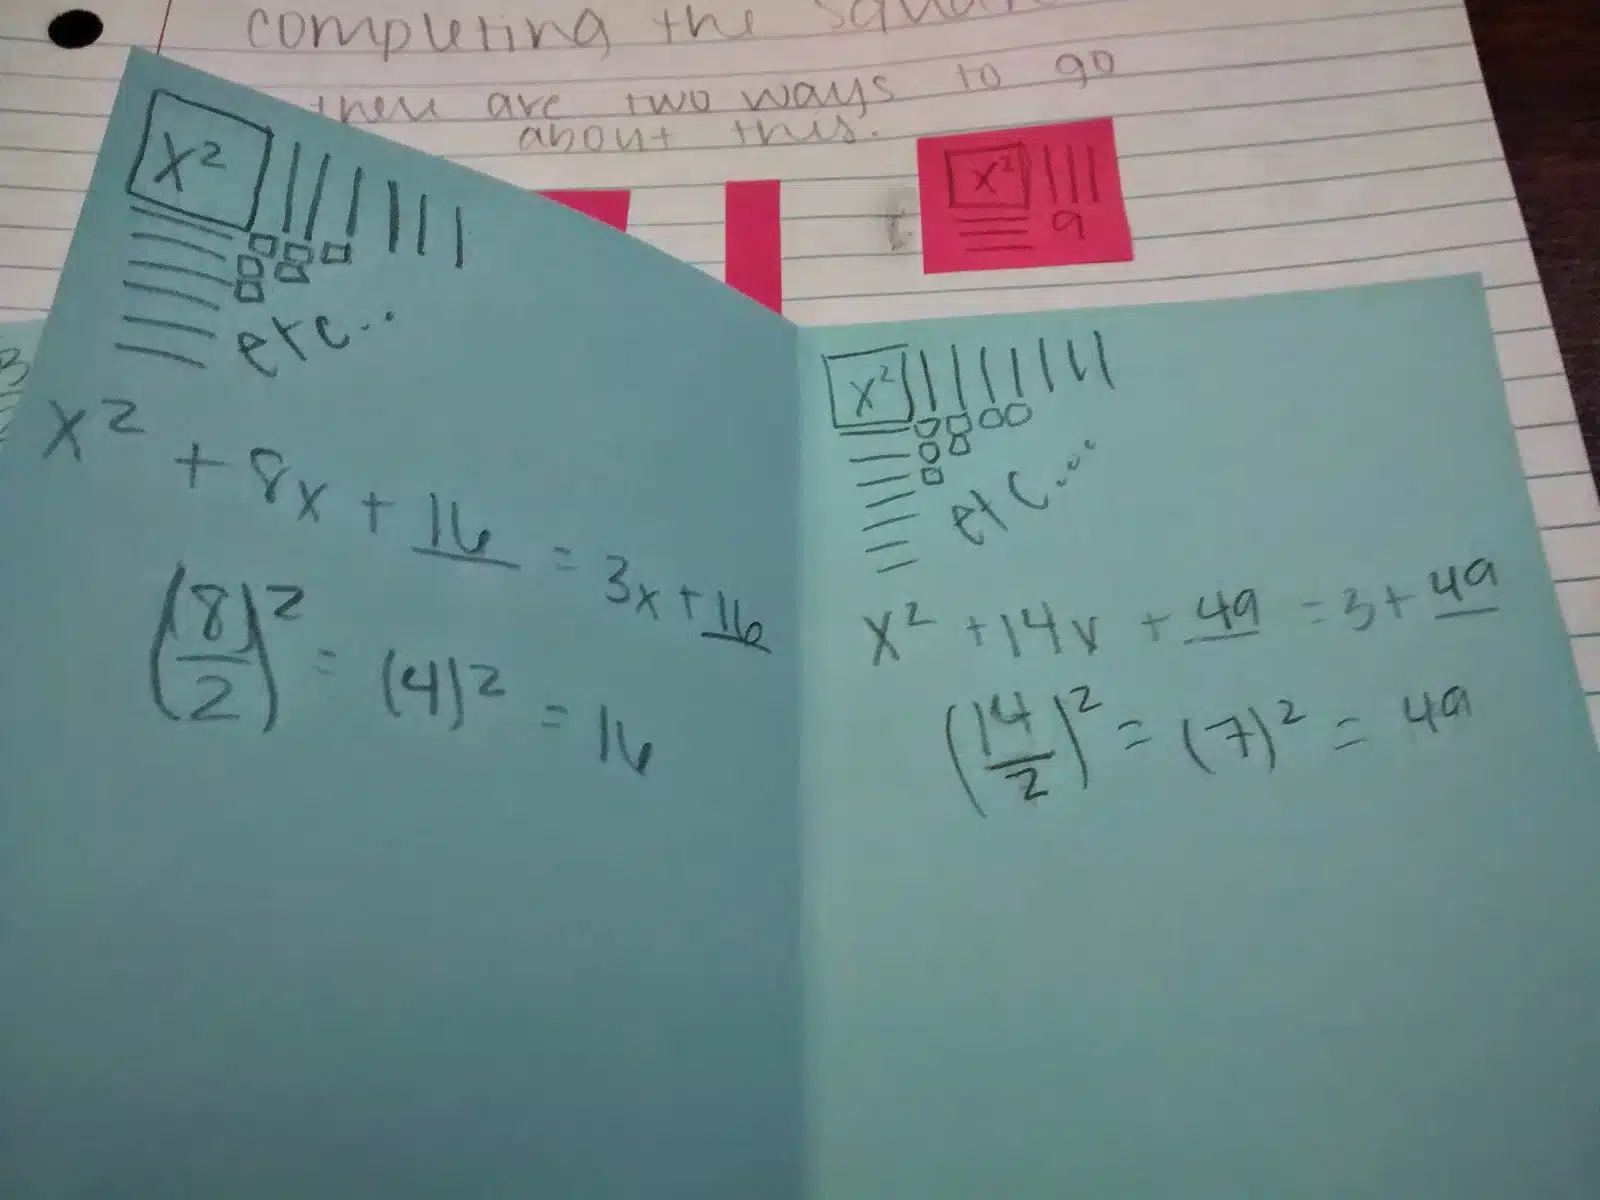 completing the square
there are two ways to go
about this.
x²
9
x²
etc...
x² + 8x + 16 = 3x + 16
(8/2)² = (4)² = 16
x²
etc...
x² + 14x + 49 = 3 + 49
(14/2)² = (7)² = 49